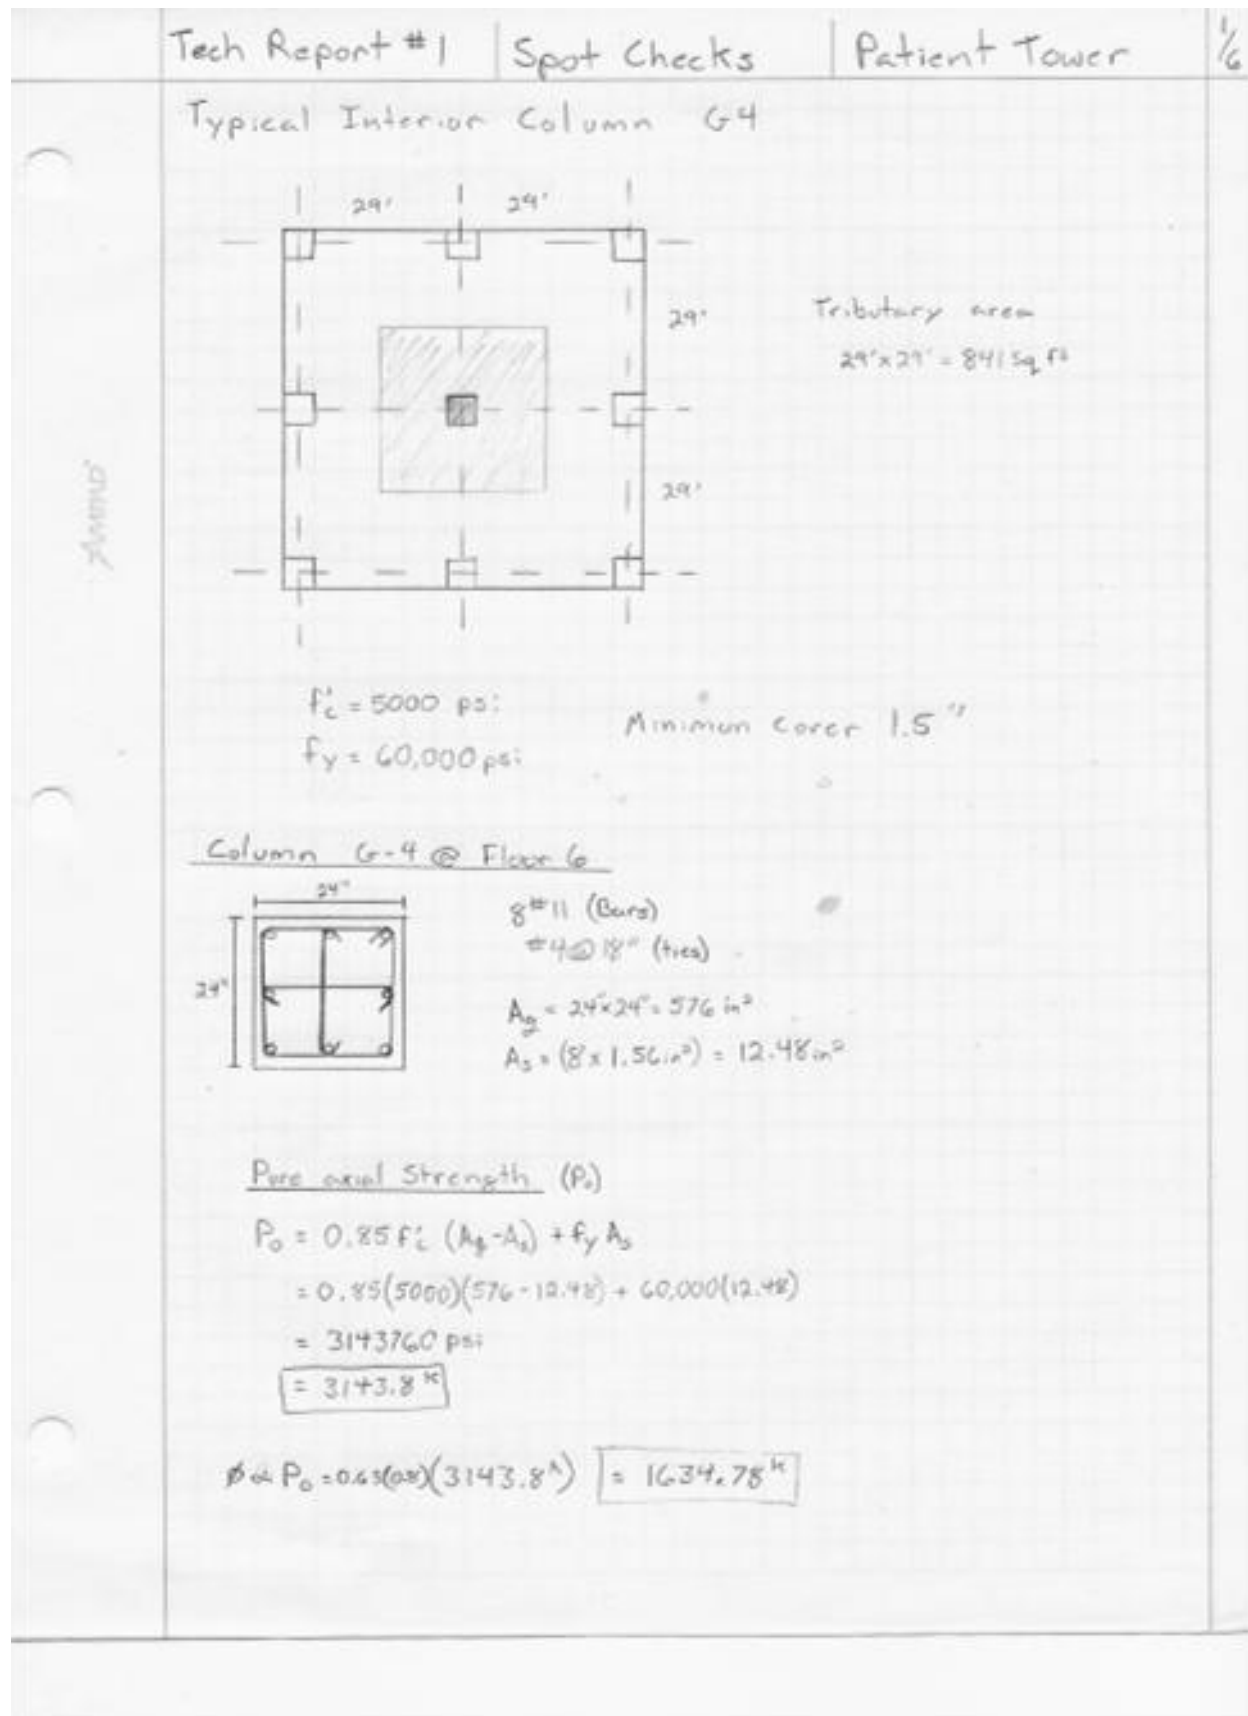 Tech Report #1 | Spot Checks | Patient Tower 1/6
Typical Interior Column G4
29' 29'
29'
Tributary area
29'x29' = 841 sq ft
29'
f'c = 5000 psi
Minimum Cover 1.5"
fy = 60,000 psi
Column G-4 @ Floor 6
24"
8#11 (Bars)
#4@18" (ties)
24"
Ag = 24"x24" = 576 in²
As = (8 x 1.56in²) = 12.48in²
Pure axial Strength (Po)
Po = 0.85 f'c (Ag-As) + fy As
= 0.85(5000)(576-12.48) + 60,000(12.48)
= 3143760 psi
= 3143.8 k
ø α Po = 0.65(0.8)(3143.8k) = 1634.78k